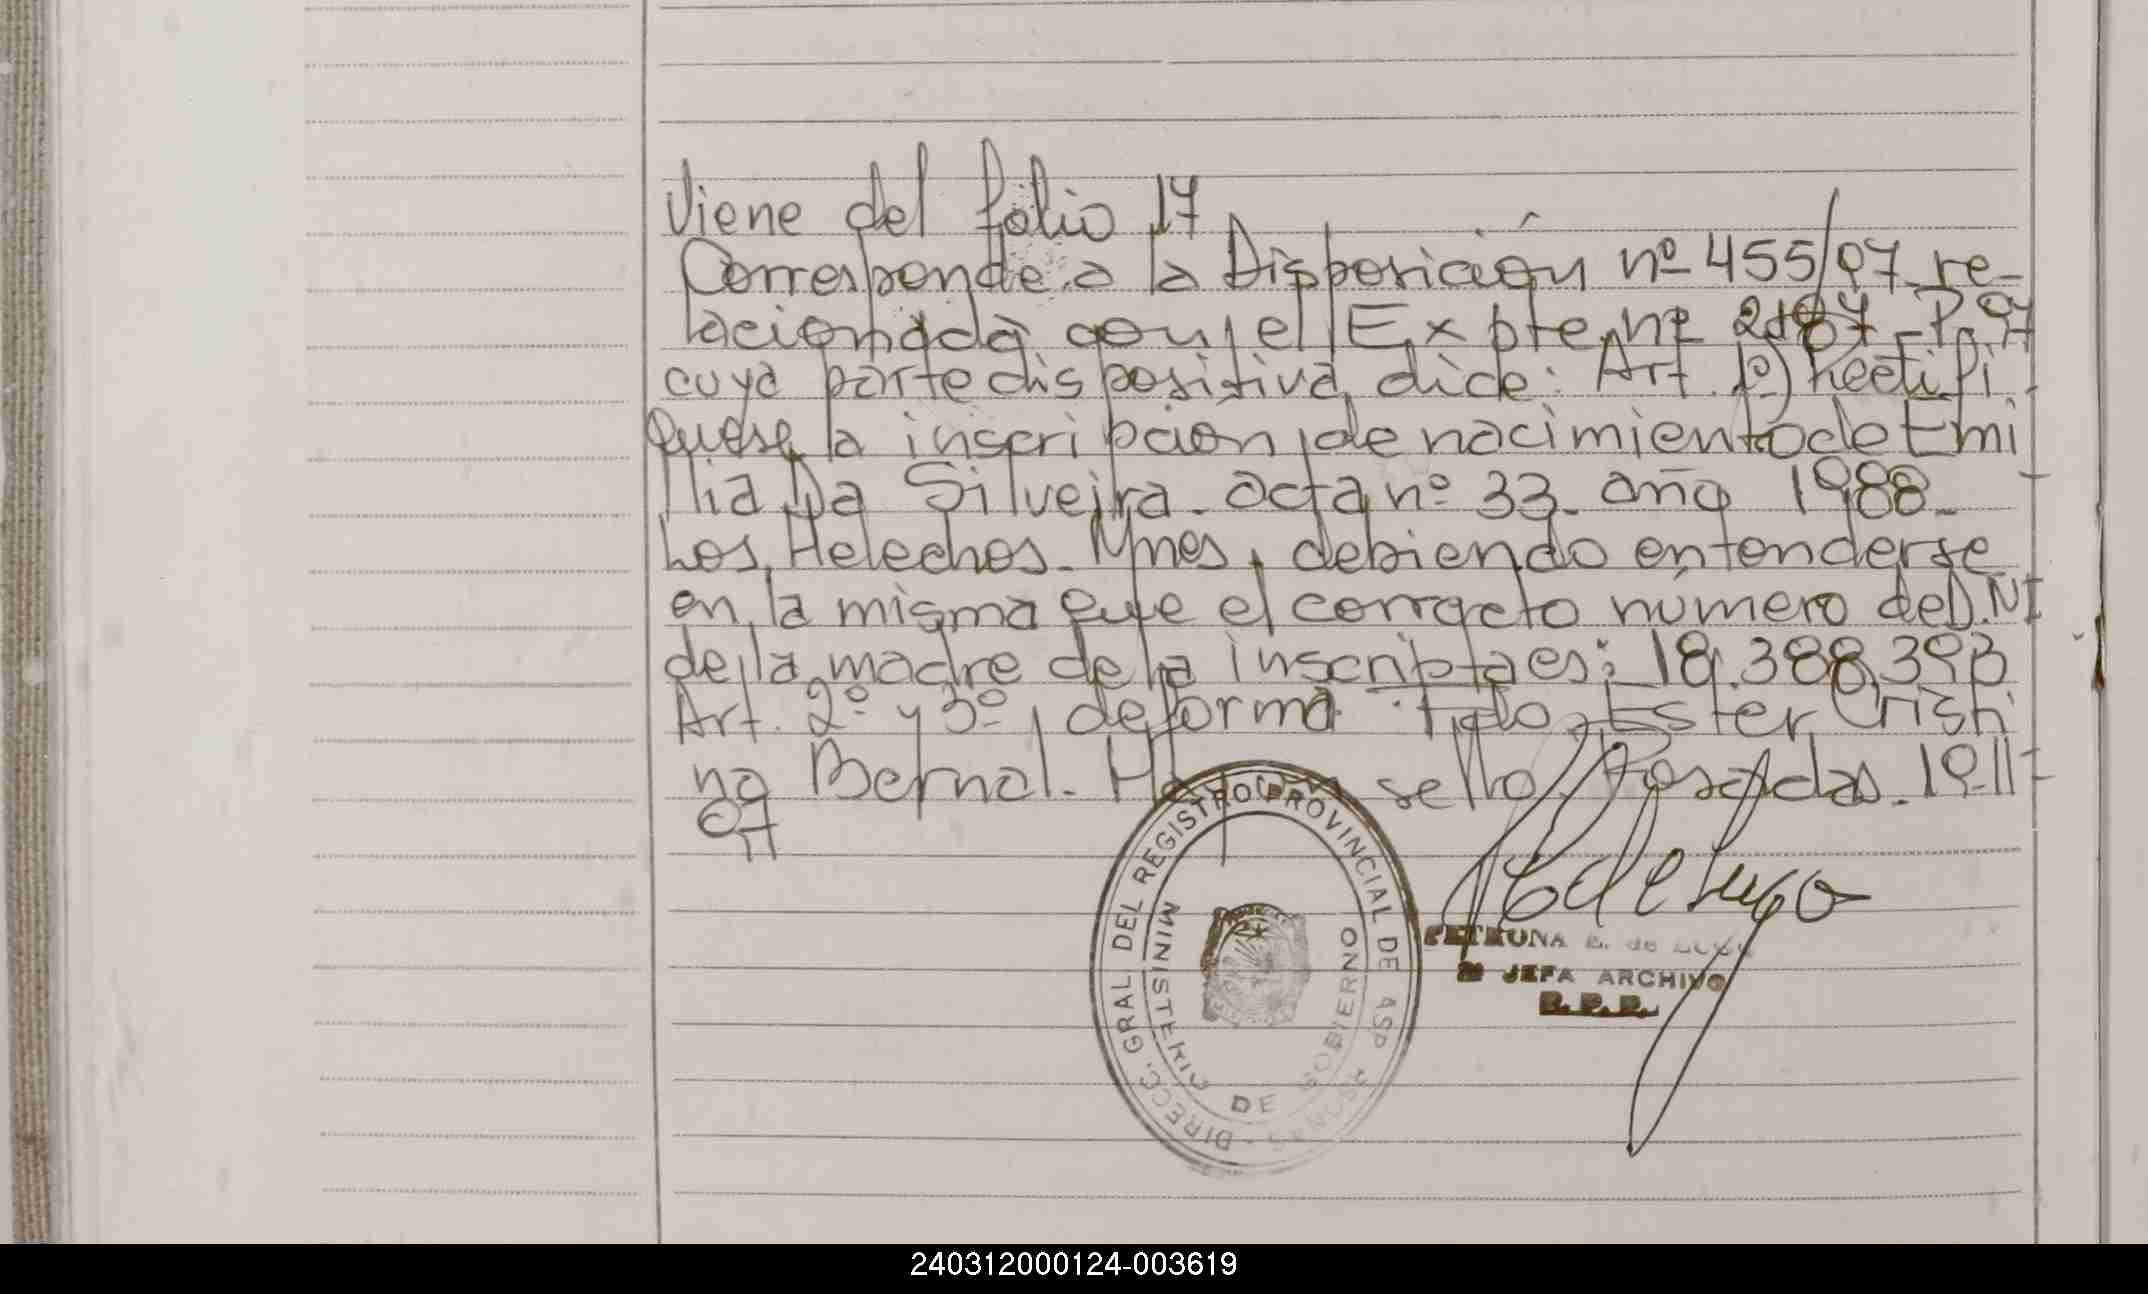 Viene del folio 17
Corresponde a la Disposición nº 455/97 re-
lacionada con el Expte nº 2187-P-97
cuya parte dispositiva dice: Art. 1º) Rectifí
quese la inscripcion de nacimiento de Emi
lia Da Silveira. acta nº 33. año 1988-
Los Helechos. Mnes, debiendo entenderse
en la misma que el correcto número de D.NI
de la madre de la inscripta es: 18.388.393
Art. 2º y 3º, de forma Fdo. Ester Cristi
na Bernal. Hay un sello. Posadas. 19-11-
97
DIRECC. GRAL DEL REGISTRO PROVINCIAL DE
MINISTERIO DE GOBIERNO
PETRONA E. de LUGO
JEFA ARCHIVO
R.P.P.
240312000124-003619